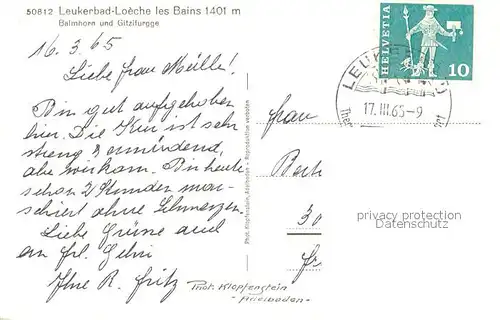 50812 Leukerbad-Loèche les Bains 1401 m
Balmhorn und Gitzifurgge
16. 3. 65
Liebe Frau Müller!
Bin gut aufgehoben
hier. Die Kur ist sehr
streng & ermüdend,
aber wirksam. Bin heute
schon 2 Stunden mar-
schiert ohne Schmerzen.
Liebe Grüsse auch
an Frl.
Ihre R. Fritz
Phot. Klopfenstein
-Adelboden-
Phot. Klopfenstein, Adelboden - Reproduktion verboten
HELVETIA
10
LEUK
17.III.65-9
Ther
Frau
Bert
30
Fr
privacy protection
Datenschutz